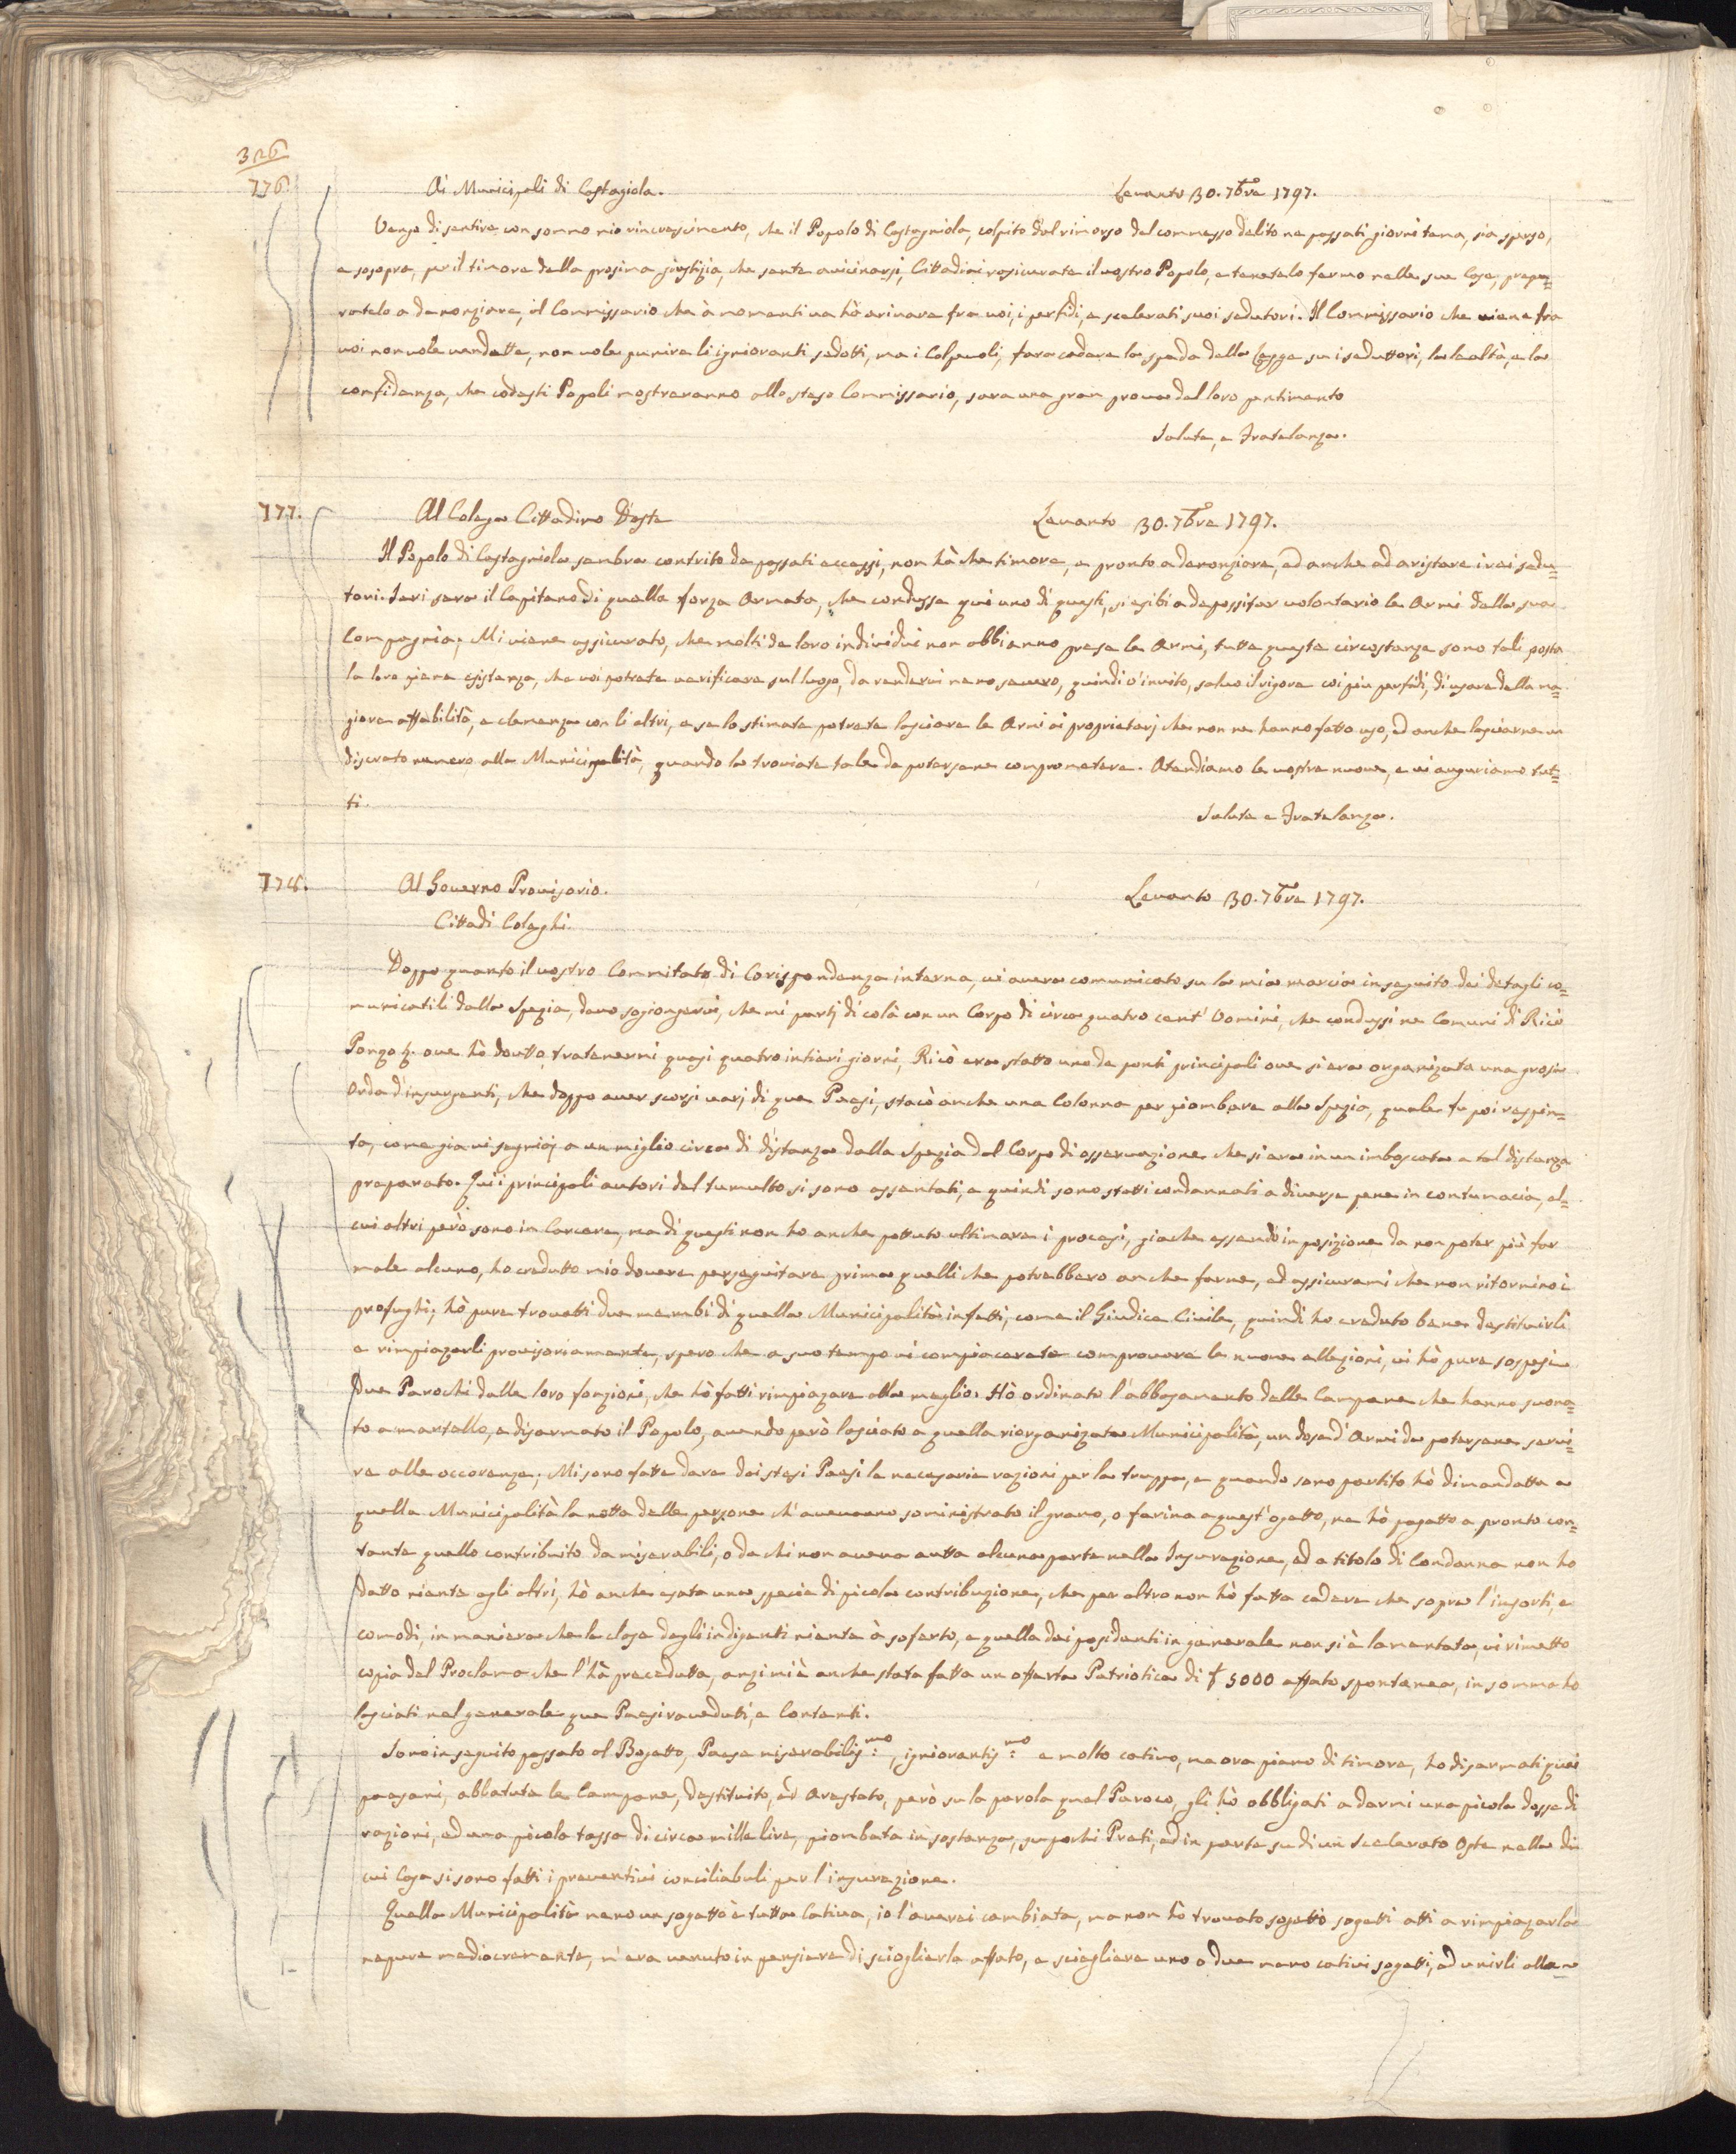 326
776.
Ai Municipali di Castagiola. Levanto 30. 7bre 1797.
Vengo di sentire con sommo mio rincrescimento, che il Popolo di Castagniola, colpito dal rimorso del commesso delito ne passati giorni tema, sia sperso,
e sosopra, per il timore della prosima giustizia, che sente avicinarsi, Cittadini rasicurate il vostro Popolo, e tenetelo fermo nelle sue Case, prepa=
ratelo a denonziare, al Commissario che à momenti va hà arivare fra voi, i perfidi, e scelerati suoi sedutori. Il Commissario che viene fra
voi non vole vendette, non vole punire li ignioranti sedotti, ma i Colpevoli, fara cadere la spada della Legge su i seduttori, la lealtà, e la
confidenza, che codesti Popoli mostreranno allo steso Commissario, sara una gran prova del loro pentimento
Salute, e Fratelanza.
777. Al Colega Cittadino D'Aste Levanto 30. 7bre 1797.
Il Popolo di Castagniola sembra contrito de passati eccessi, non hà che timore, e pronto a denonziare, ed anche ad aristare i rei sedu=
tori. Ieri sera il Capitano di quella forza Armata, che condusse qui uno di questi, si esibi a depossitar volontario le Armi della sua
Compagnia, Mi viene assicurato, che molti de loro individui non abbianno prese le Armi, tutte queste circostanze sono tali posta
la loro piena esistanza, che voi potrete verificare sul luogo, da rendervi meno severo, quindi v'invito, salvo il rigore coi più perfidi, di usare della ma=
giore affabilità, e clemenza con li altri, e se lo stimate potrete lasciare le Armi ai proprietarj che non ne hanno fatto uso, ed anche lasciarne un
discreto numero alla Municipalità, quando la troviate tale da potersene comprometere. Atendiamo le vostre nuove, e vi auguriamo tut=
ti. Salute e Fratelanza.
778. Al Governo Provisorio. Levanto 30. 7bre 1797.
Cittadi Coleghi.
Doppo quanto il vostro Commitato di Corispondenza interna, vi avera comunicato su la mia marcia in seguito dei detagli co=
municatili dalla Spezia, devo sogiongervi, che mi partj di colà con un Corpo di circa quatro cent' Uomini, che condussi ne Comuni di Ricò
Ponzo &. ove hò dovuto tratenermi quasi quatro intieri giorni, Ricò era statto uno de ponti principali ove si era organizata una grosa
Orda d'insurgenti, che doppo aver scorsi varj di que Paesi, stacò anche una Colonna per piombare alla Spezia, quale fu poi respin=
ta, come gia vi segniai a un miglio circa di distanza dalla Spezia dal Corpo di osservazione che si era in un imboscata a tal distanza
preparato. Qui i principali autori del tumulto si sono assentati, e quindi sono statti condannati a diverse pene in contumacia, al=
cui altri però sono in Carcere, ma di questi non ho anche pottuto ultimare i procesi, giache essendo in posizione da non poter più far
male alcuno, ho creduto mio dovere perseguitare prima quelli che potrebbero anche farne, ed assicurarmi che non ritornino i
profughi; hò pure trovatti due membi di quella Municipalità infetti, come il Giudice Civile, quindi ho creduto bene destituirli
e rimpiazarli provisoriamente, spero che a suo tempo vi compiacerete comprovare le nuove ellezioni, vi hò pure sospesi
due Parochi dalle loro fonzioni, che hò fatti rimpiazare alla meglio. Hò ordinato l'abbasamento delle Campane che hanno suona=
to a martello, e disarmato il Popolo, avendo però lasciato a quella riorganizata Municipalità, un dose d'Armi da potersene servi=
re alle occorenze; Mi sono fatte dare dai stesi Paesi le necesarie razioni per la truppa, e quando sono partito hò dimandatta a
quella Municipalità la notta delle persone ch'avevano sominiestrato il grano, o farina a quest'ogetto, ne hò pagatto a pronto con=
tante quello contribuito da miserabili, o da chi non aveva avuta alcuna parte nella Insurezione, ed a titolo di Condanna non ho
datto niente agli altri, hò anche esata una specie di picola contribuzione, che per altro non hò fatta cadere che sopra l'insorti, e
comodi, in maniera che la clase degli indigenti niente à soferto, e quella dei posidenti in generale non si è lamentata, vi rimetto
copia del Proclama che l'hà precedutta, anzi mi è anche stata fatta un offerta Patriotica di £ 5000 affato spontanea, in somma ho
lasciati nel generale que Paesi raveduti, e Contenti.
Sono in seguito passato al Bozetto, Paese miserabilis:mo, igniorantis:mo e molto cativo, ma ora pieno di timore, ho disarmati quei
paesani, abbatuta le Campane, destituito, ed Arestato, però su la parola quel Paroco, gli hò obbligati a darmi una picola dosse di
razioni, ed una picola tassa di circa mille lire, piombata in sostanza, su pochi Preti, ed in parte su di un Scelerato Oste nella di
cui Casa si sono fatti i preventivi conciliabuli per l'insurezione.
Quella Municipalità meno un sogetto è tutta Cativa, io l'averei cambiata, ma non hò trovato sogetti sogetti atti a rimpiazarla
nepure mediocremente, m'era venuto in pensiere di sciogliarla affato, e sciegliere uno o due meno cativi sogetti, ed unirli alla